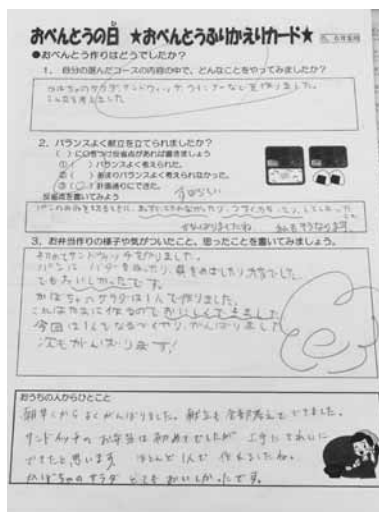 おべんとうの日 ★おべんとうふりかえりカード★
●おべんとう作りはどうでしたか?
1. 自分の選んだコースの内容の中で、どんなことをやってみましたか?
かぼちゃのサラダ、サンドウィッチ、ウインナーなどを作りました。
こんだても考えました。
2. バランスよく献立を立てられましたか?
( )に○をつけ反省点があれば書きましょう
①( )バランスよく考えられた。
②( )あまりバランスよく考えられなかった。
③( )計画通りにできた。
すばらしい
反省点を書いてみよう
がんばりましたね
3. お弁当作りの様子や気がついたこと、思ったことを書いてみましょう。
初めてサンドウィッチを作りました。
パンにバターをぬったり、具をのせたり
でもおいしかったです。
かぼちゃのサラダは1人で作りました。
今回は1人でなるべくやり、がんばりました
次もがんばります!
おうちの人からひとこと
朝早くからよくがんばりました。献立も全部考えてできました。
サンドイッチのお弁当は初めてでしたが上手にきれいに
できたと思います。ほとんど1人で作れましたね。
かぼちゃのサラダとてもおいしかったです。